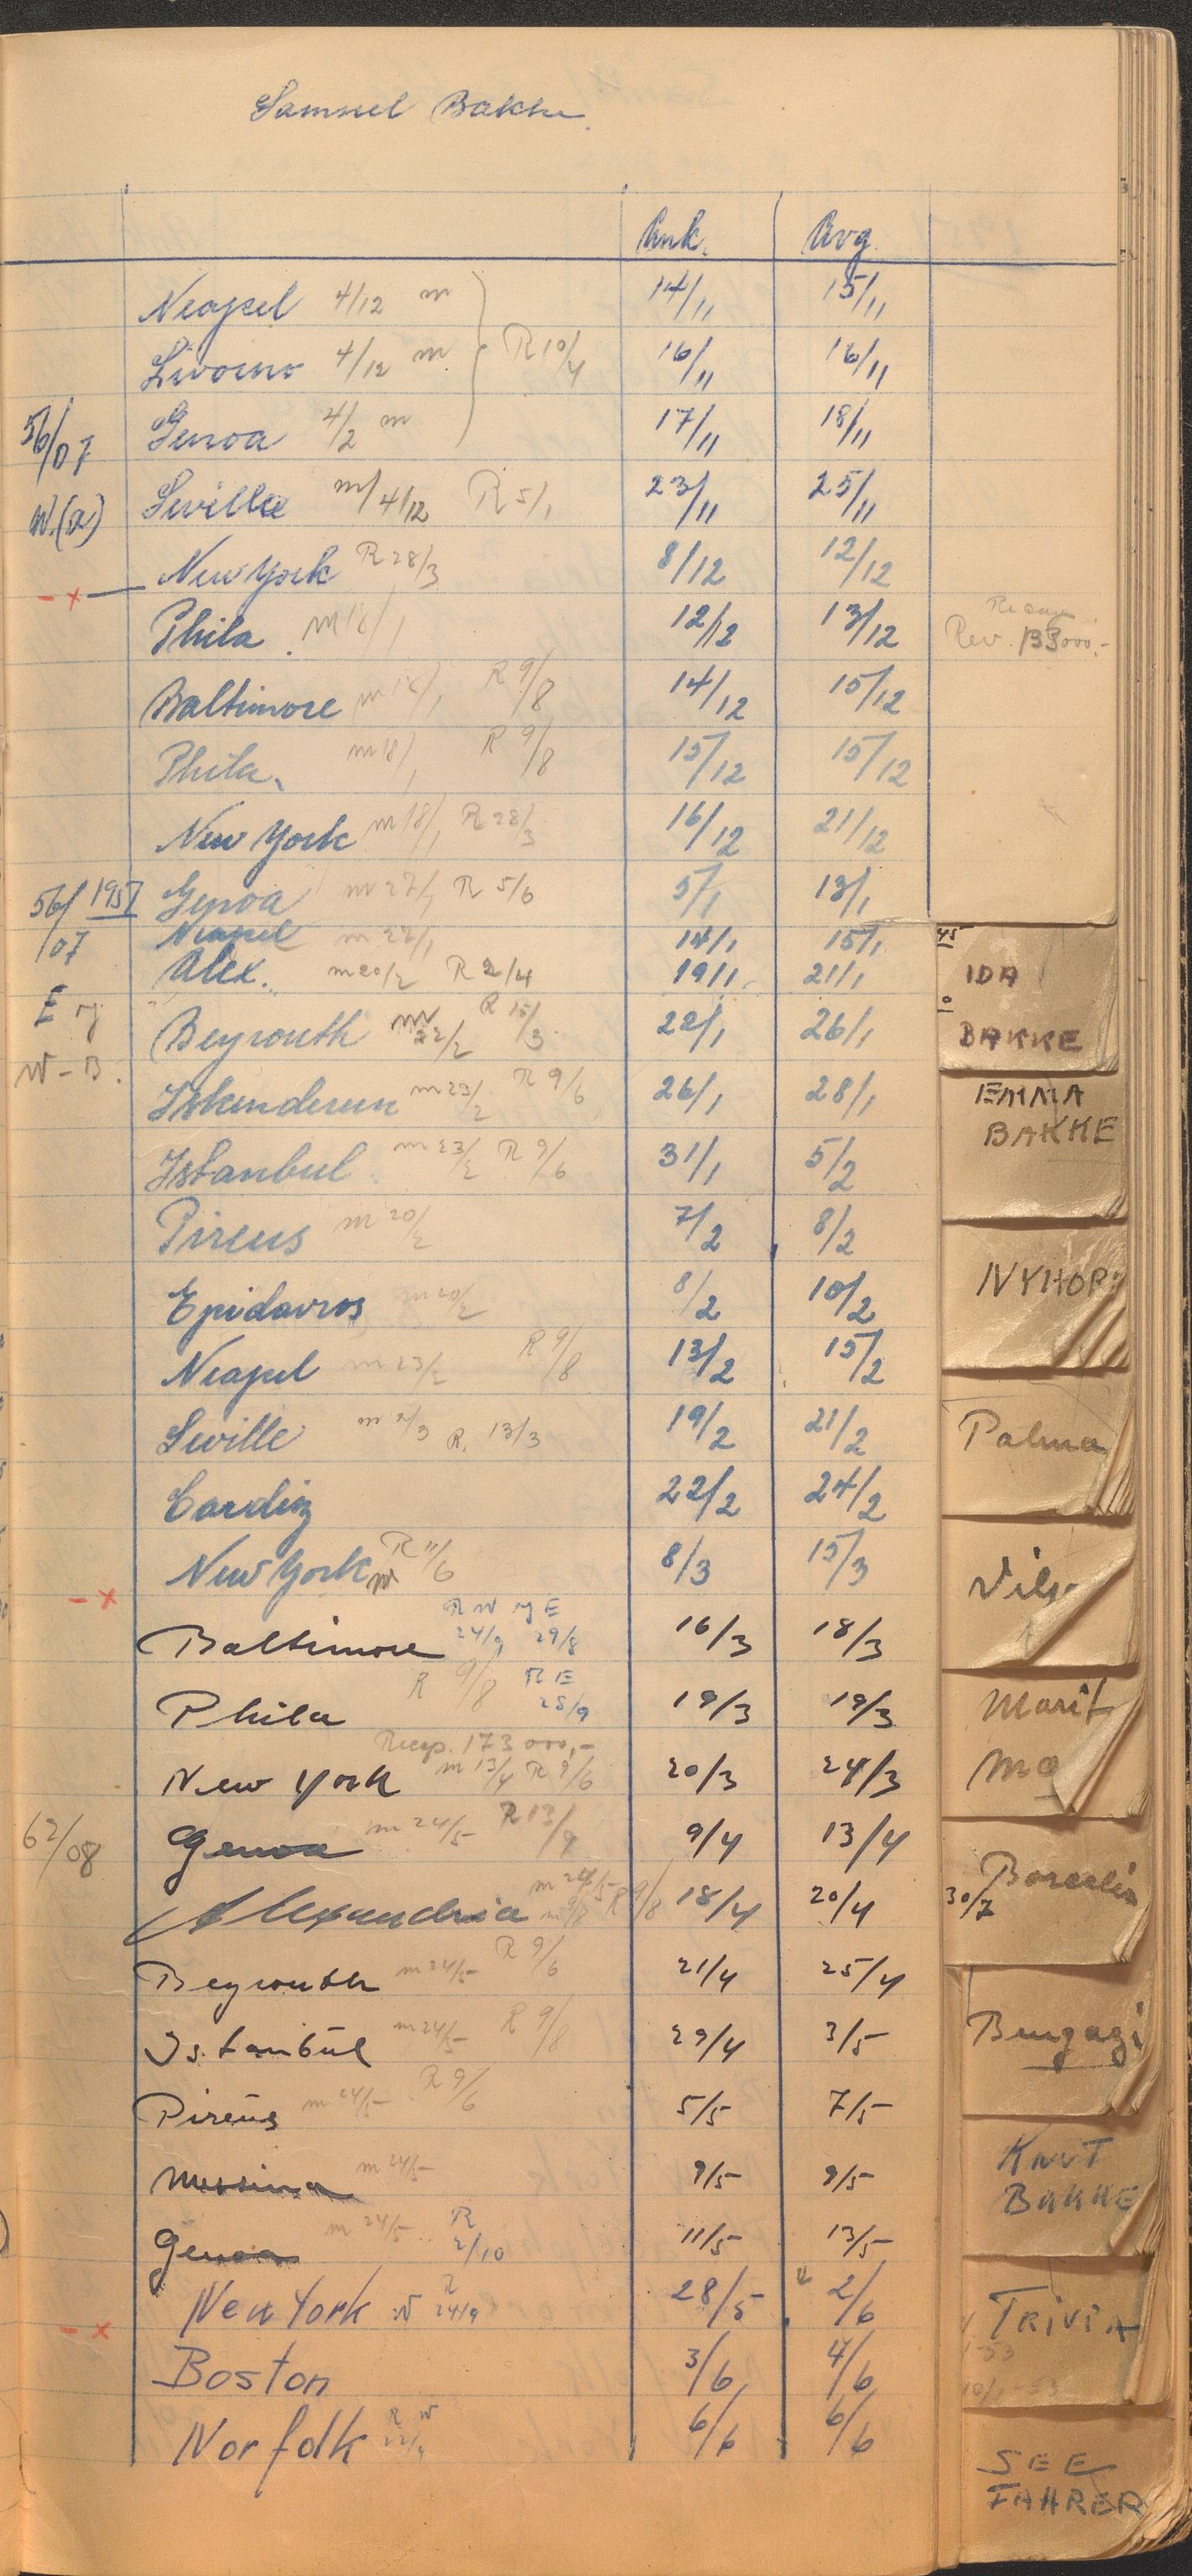 Samuel Bakke
Ank. Avg.
Neapel 4/12 m 14/11 15/11
Livorno 4/12 m R 10/4 16/11 16/11
56/07 Genoa 4/2 m 17/11 18/11
W.(a) Seville m/4/12 R 5/1 23/11 25/11
New York R 28/3 8/12 12/12
- x
Phila. m 18/1 12/12 13/12 Rev. 133000.-
Baltimore m 18/1 R 9/8 14/12 15/12
Phila. m 18/1 R 9/8 15/12 15/12
New York m 18/1 R 28/3 16/12 21/12
56/07 1957 Genoa m 27/1 R 5/6 5/1 13/1
Neapel m 22/1 14/1 15/1
Alex. m 20/2 R 2/4 19/1 21/1
E og Beyrouth m 22/2 R 15/3 22/1 26/1
W-B. Iskenderun m 23/2 R 9/6 26/1 28/1
Istanbul m 23/2 R 9/6 31/1 5/2
Pireus m 20/2 7/2 8/2
Epidavros m 20/2 8/2 10/2
Neapel m 23/2 R 9/8 13/2 15/2
Seville m 2/3 R. 13/3 19/2 21/2
Cardiz 22/2 24/2
New York m R 11/6 8/3 15/3
- x
R W og E
Baltimore 24/9 29/8 16/3 18/3
Phila R 9/8 R E 25/9 19/3 19/3
Recap. 173 000,-
New York m 13/4 R 9/6 20/3 24/3
62/08 Genoa m 24/5 R 13/9 9/4 13/4
Alexandria m 24/5 R 9/8 18/4 20/4
Beyrouth m 24/5 R 9/6 21/4 25/4
Istanbul m 24/5 R 9/8 29/4 3/5
Pireus m 24/5 R 9/6 5/5 7/5
Messina m 24/5 9/5 9/5
Genoa m 24/5 R 2/10 11/5 13/5
New York W R 24/9 28/5 2/6
- x
Boston 3/6 4/6
Norfolk R W 22/9 6/6 6/6
45
IDA
BAKKE
EMMA
BAKKE
NYHOR
Palma
Vils
Marit
Mæ
30/7
Bengazi
Knut
Bakke
TRIVIA
SEE
FAHRER